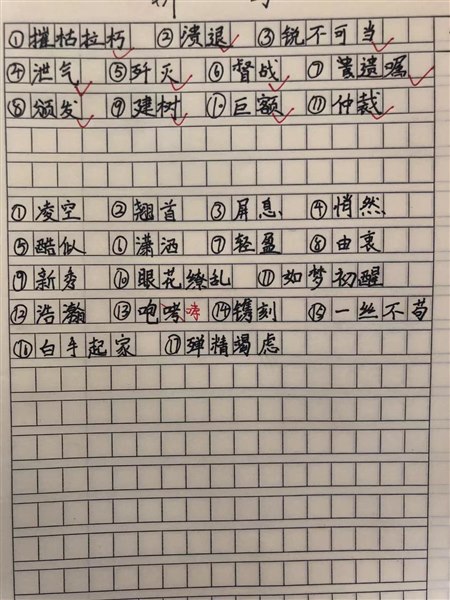 ①摧枯拉朽 ②溃退 ③锐不可当
④泄气 ⑤歼灭 ⑥督战 ⑦遗嘱
⑧颁发 ⑨建树 ⑩巨额 ⑪仲裁
①凌空 ②翘首 ③屏息 ④悄然
⑤酷似 ⑥潇洒 ⑦轻盈 ⑧由衷
⑨新秀 ⑩眼花缭乱 ⑪如梦初醒
⑫浩瀚 ⑬咆哮 ⑭镌刻 ⑮一丝不苟
⑯白手起家 ⑰殚精竭虑